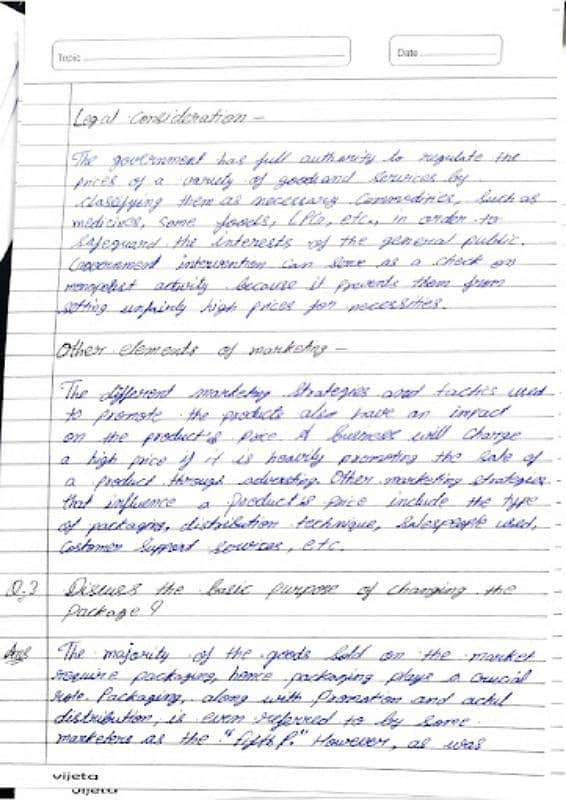 Topic
Date
Legal Consideration –
The government has full authority to regulate the
prices of a variety of goods and services by
classifying them as necessary commodities, such as
medicines, some foods, LPG, etc., in order to
safeguard the interests of the general public.
Government intervention can serve as a check on
monopolist activity because it prevents them from
setting unfairly high prices for necessities.
Other elements of marketing –
The different marketing strategies and tactics used
to promote the products also have an impact
on the product's price. A business will charge
a high price if it is heavily promoting the sale of
a product through advertising. Other marketing strategies
that influence a product's price include the type
of packaging, distribution technique, salespeople used,
customer support services, etc.
Q.3 Discuss the basic purpose of changing the
package ?
Ans The majority of the goods sold on the market
require packaging, hence packaging plays a crucial
role. Packaging, along with Promotion and
distribution, is even referred to by some
marketers as the "fifth P." However, as was
vijeta
vijeta